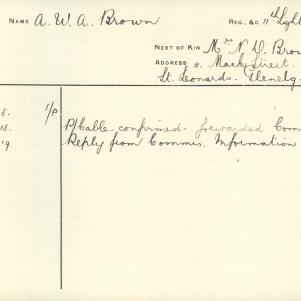 NAME A. W. A. Brown REG. &C 11th Light
NEXT OF KIN Mrs N. D. Brow
ADDRESS Mack Street.
St. Leonards. Glenelg.
8. 1/P
18. P/Cable confirmed. forwarded Com
19 Reply from Commis. Information